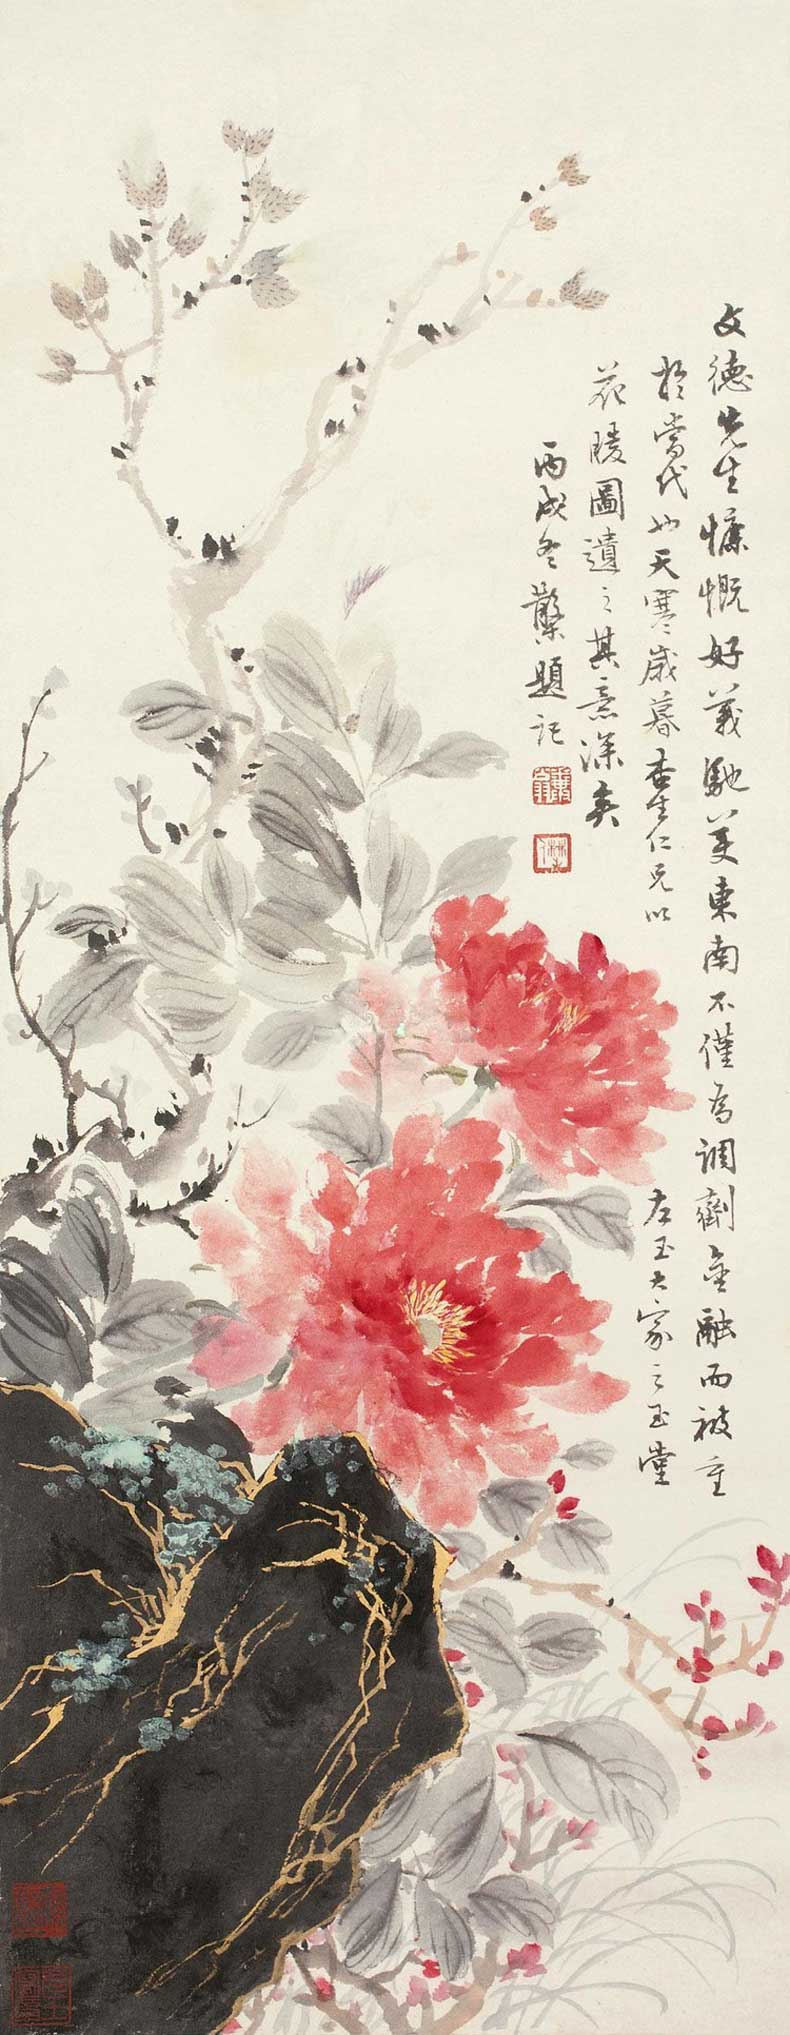 文德先生慷慨好義馳美東南不僅為調劑金融而被重
於當代也天寒歲暮杏生仁兄以左玉大家之玉堂
花暖圖遺之其意深矣
丙戌冬題記